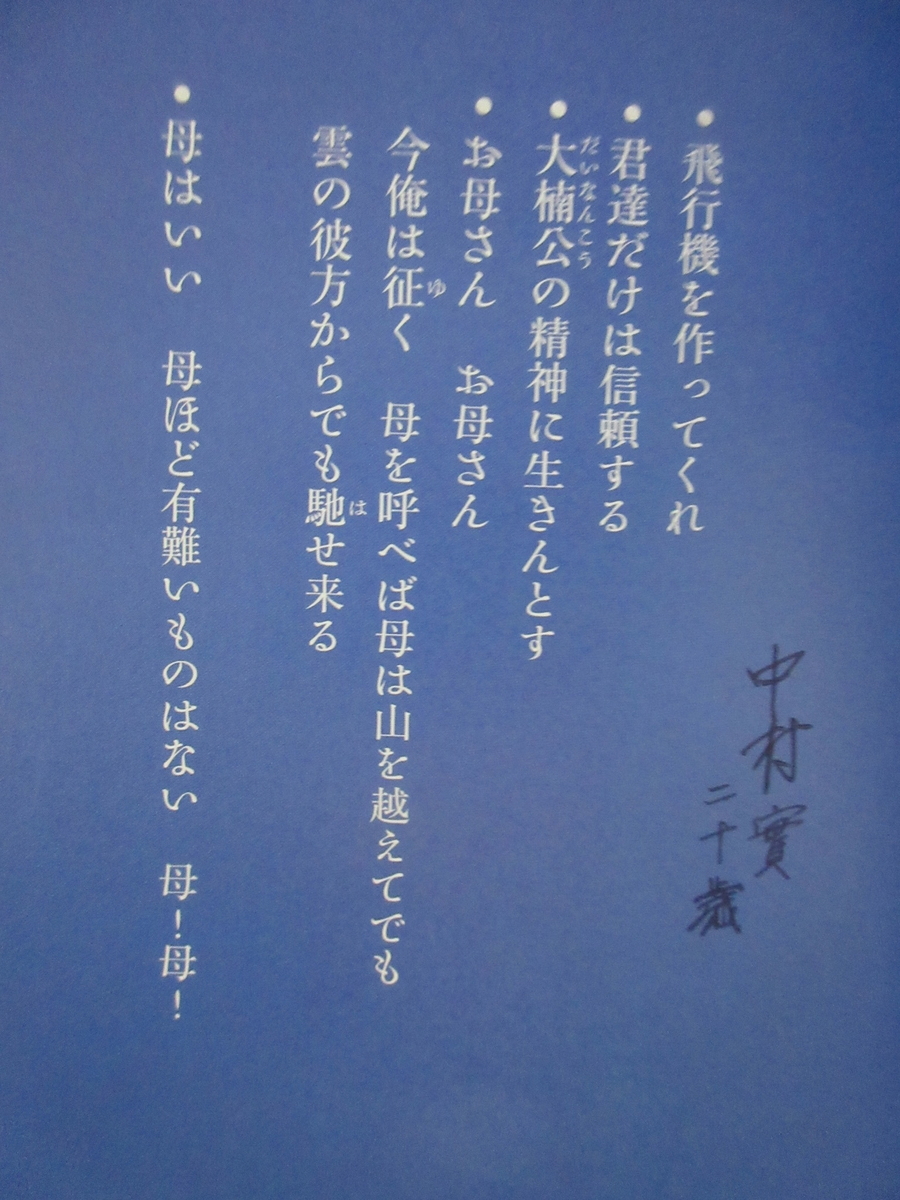 中村實
二十歳
●飛行機を作ってくれ
●君達だけは信頼する
●大楠公の精神に生きんとす
だいなんこう
●お母さん　お母さん
今俺は征く　母を呼べば母は山を越えてでも
ゆ
雲の彼方からでも馳せ来る
は
●母はいい　母ほど有難いものはない　母！母！